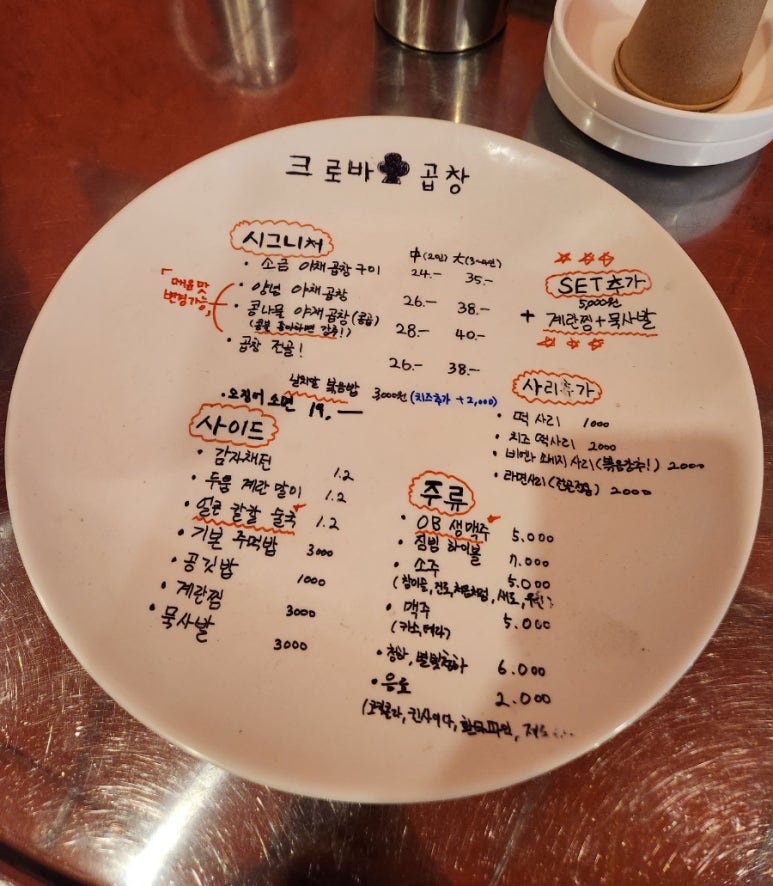 크로바 곱창
시그니처
中(2인) 大(3~4인)
· 소금 야채곱창구이 24.- 35.-
「매운맛 변경가능」
· 양념 야채곱창 26.- 38.-
· 콩나물 야채곱창(콩곱) 28.- 40.-
(콩불 좋아하면 강추!)
· 곱창 전골! 26.- 38.-
날치알 볶음밥 3000원 (치즈추가 +2,000)
· 오징어소면 19.—
SET추가
5,000원
+ 계란찜+묵사발
사리추가
· 떡 사리 1000
· 치즈 떡사리 2000
· 비엔나 소세지 사리(볶음강추!) 2000
· 라면사리 2000
사이드
· 감자채전 1.2
· 두움 계란 말이 1.2
· 얼큰 칼칼 술국 1.2
· 기본 주먹밥 3000
· 공깃밥 1000
· 계란찜 3000
· 묵사발 3000
주류
· OB 생맥주 5.000
· 짐빔 하이볼 7.000
· 소주 5.000
(참이슬, 진로, 처음처럼, 새로,
· 맥주 5.000
(카스, 테라)
· 청하, 별빛청하 6.000
· 음료 2.000